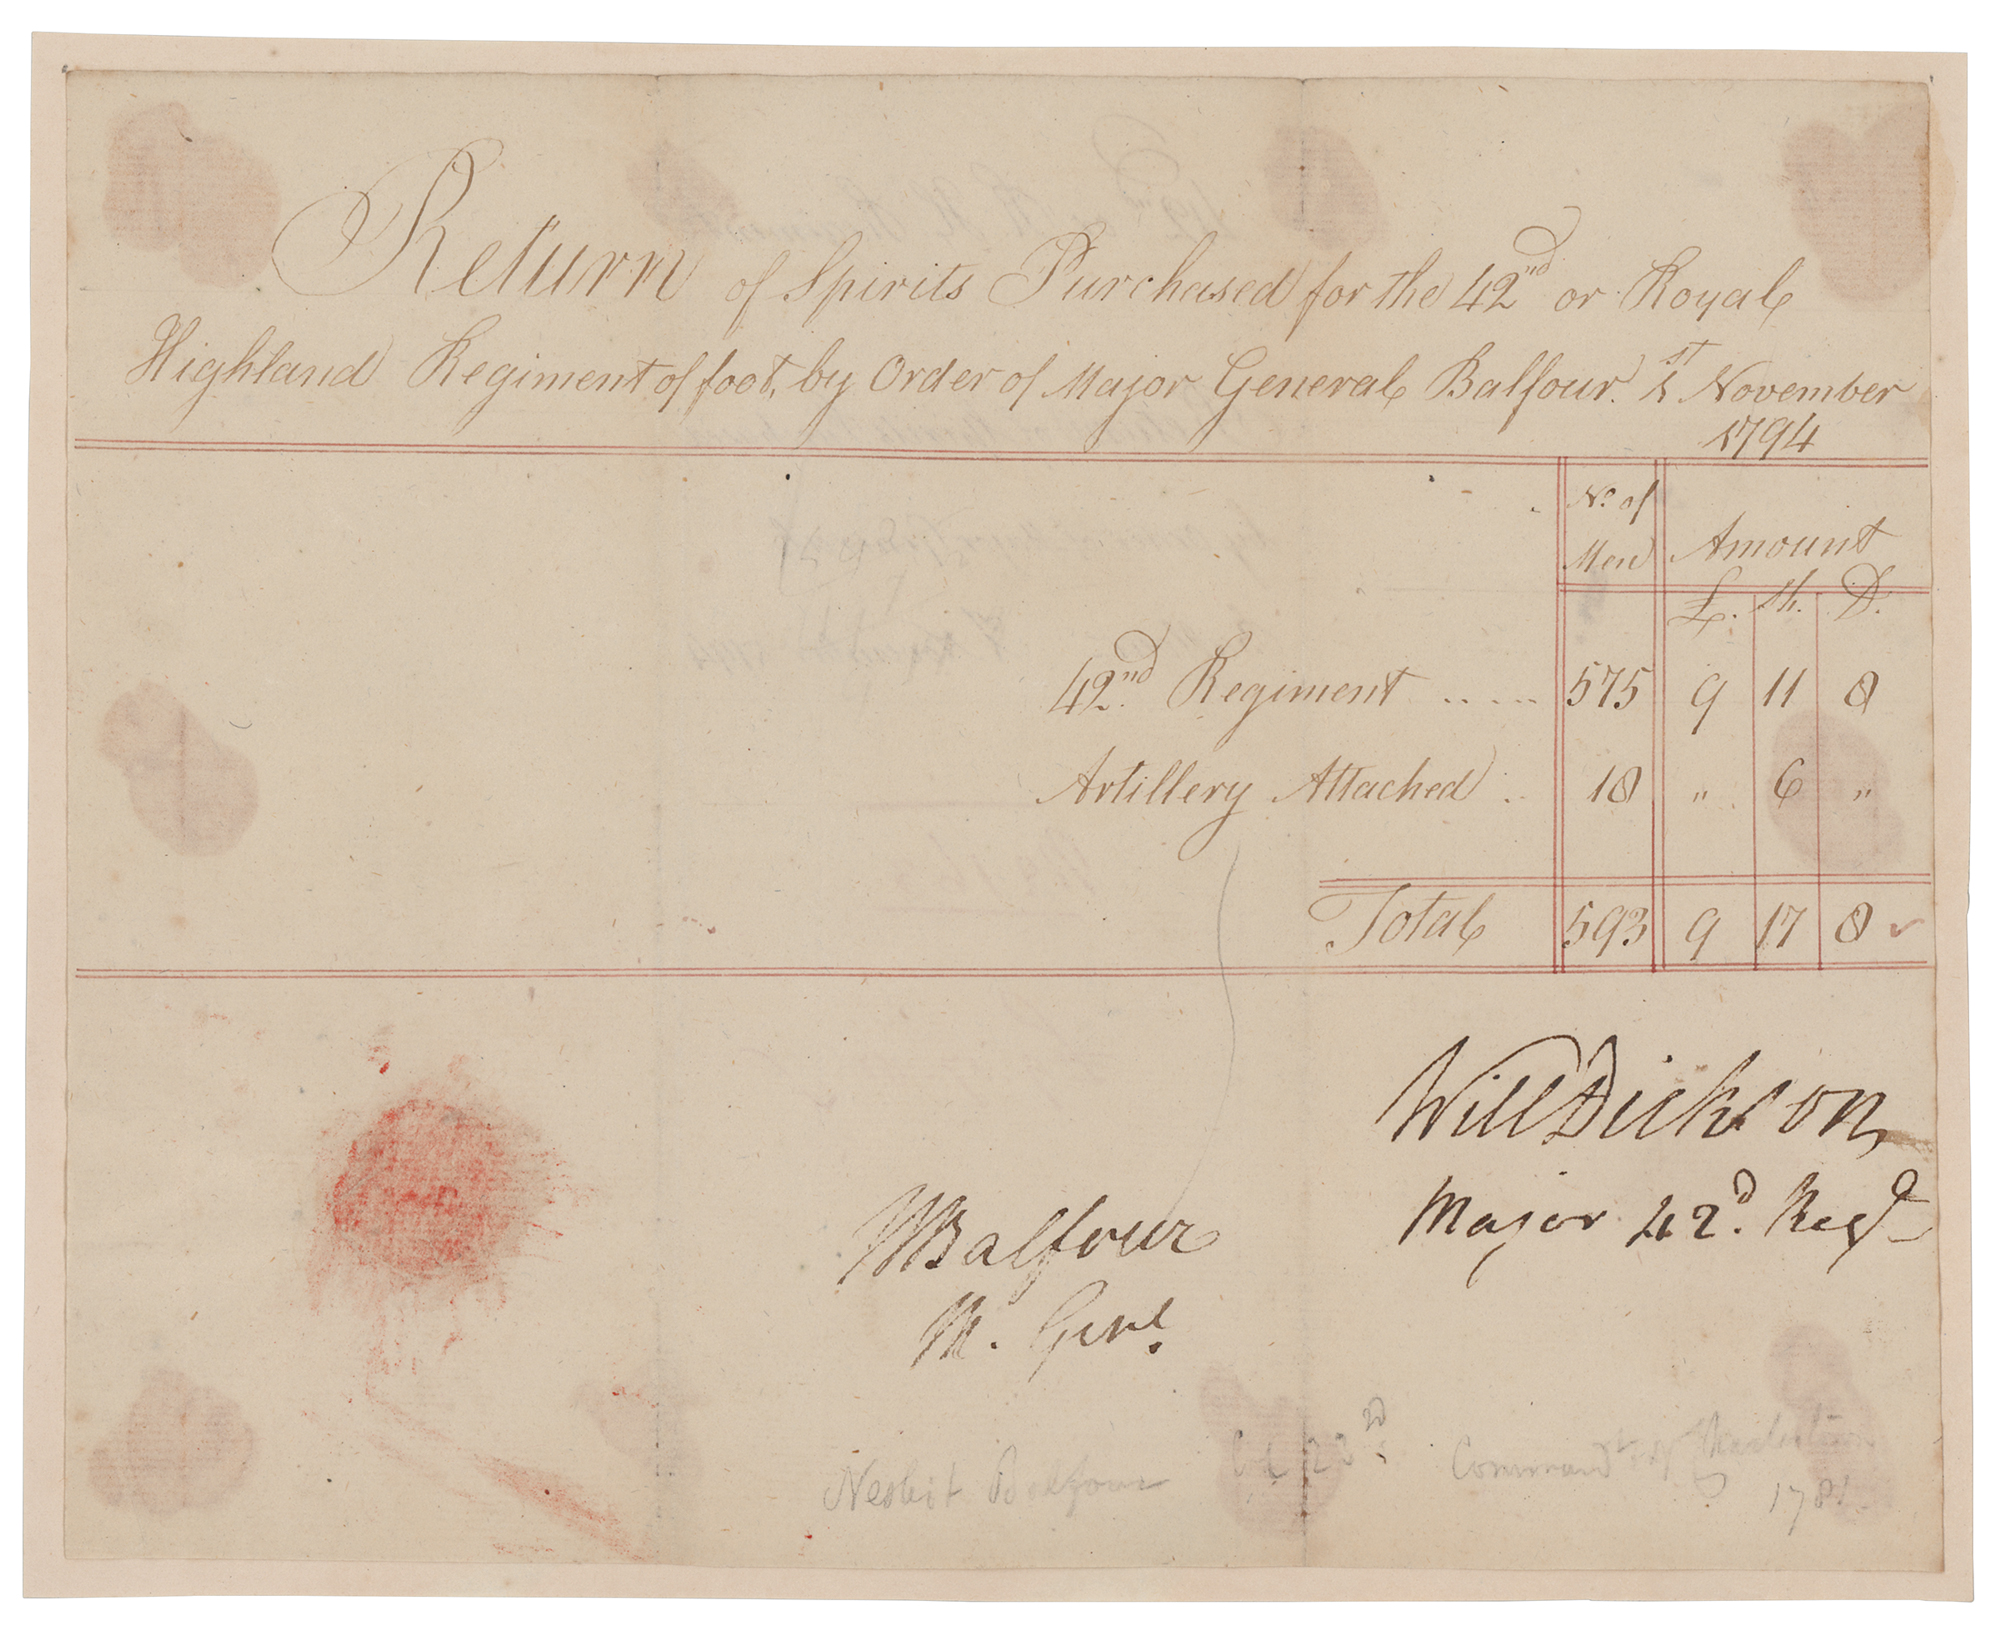 Return of Spirits Purchased for the 42nd or Royal
Highland Regiment of foot, by Order of Major General Balfour. 1st November
1794
No. of
Men
Amount
£. Sh. D.
42nd. Regiment ..... 575 9 11 8
Artillery Attached .. 18 " 6 "
Total 593 9 17 8
Will Dickson
Major 42d. Regt
NBalfour
M. Genl.
Nesbit Balfour Col 23rd Commandt of Charleston
1781